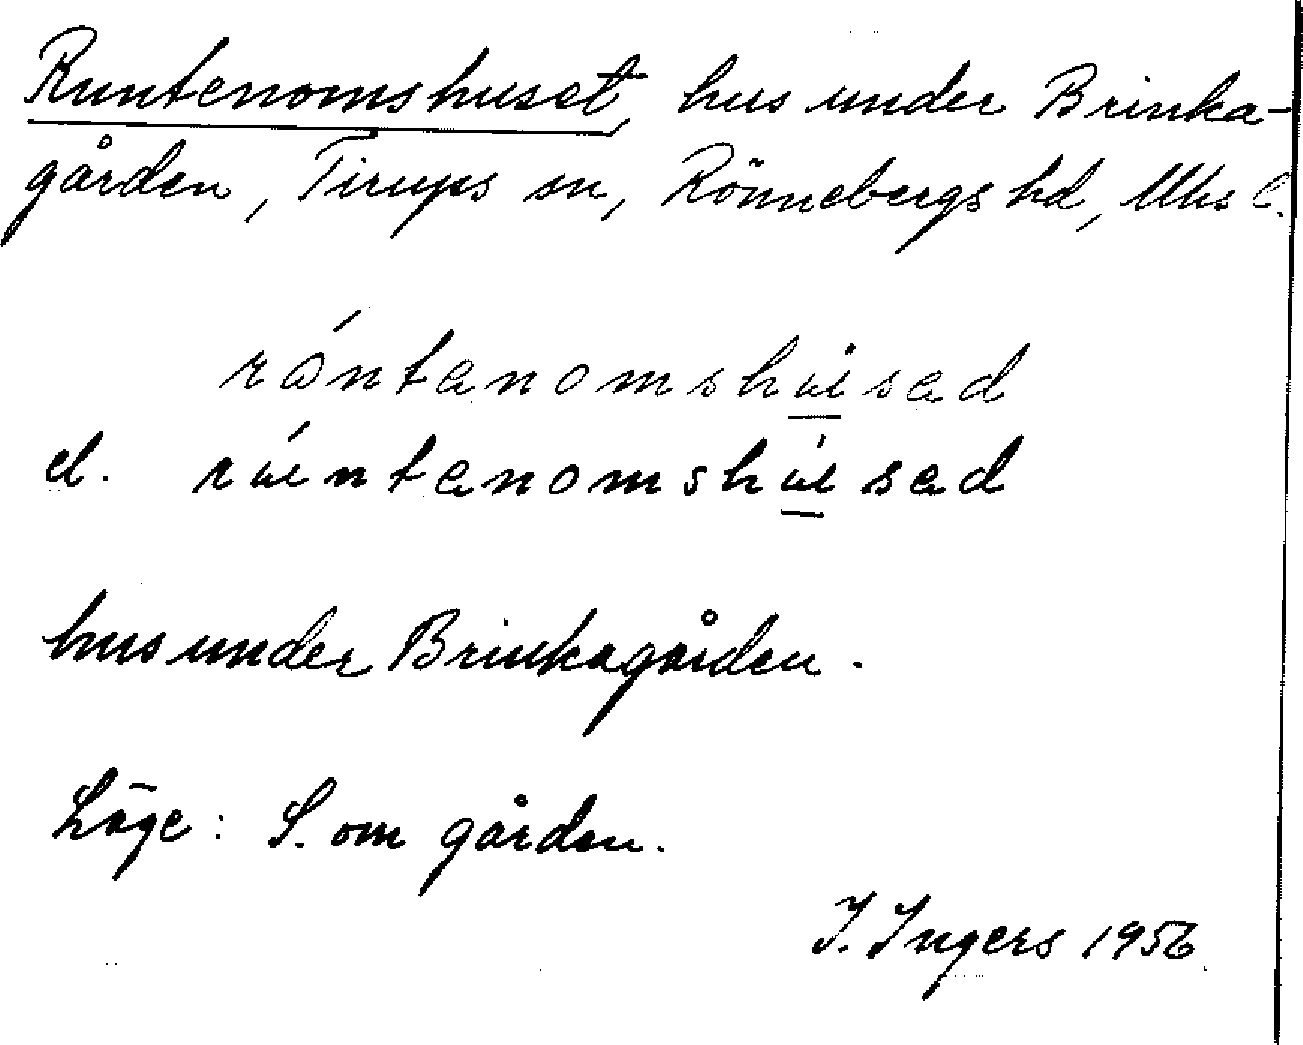 Runtenomshuset, hus under Brinka-
gården, Tirups sn, Rönnebergs hd, Mhs l.
rántanomshuisad
el. ruíntanomshuisad
hus under Brinkagården.
Läge: S. om gården.
I. Ingers 1956